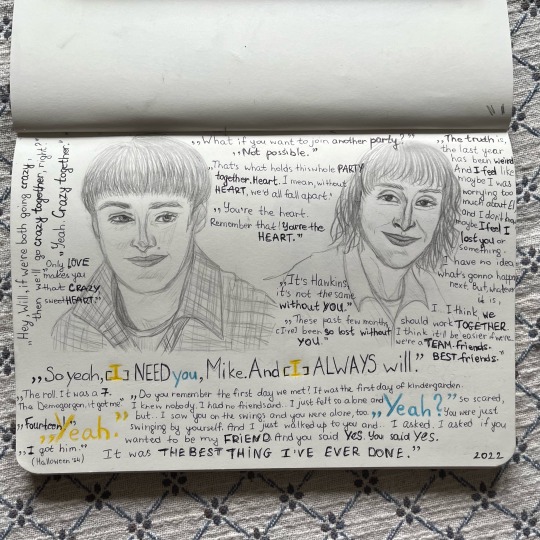 „What if you want to join another party?"
„Not possible."
„That's what holds this whole PARTY
together. Heart. I mean, without
HEART, we'd all fall apart."
„You're the heart.
Remember that! You're the
HEART."
„Hey, Will, if we're both going crazy,
then we'll go crazy together, right?"
„Yeah. Crazy together."
Only LOVE
makes you
that CRAZY,
sweetHEART."
„The truth is,
the last year
has been weird
And I feel like
maybe I was
worrying too
much about El
and I don't
maybe I feel I
lost you or
something.
I have no idea
what's gonna happen
next. But, whatever
it is,
I... I think, we
should work TOGETHER.
I think it'll be easier if we're
we're a TEAM. Friends.
BEST friends."
„It's Hawkins,
it's not the same
without YOU."
„These past few months,
I've been so lost without
you."
„So yeah, [I] NEED you, Mike. And [I] ALWAYS will."
„The roll. It was a 7.
The Demogorgon, it got me"
„fourteen"
„Yeah."
„I got him."
(Halloween '84)
„Do you remember the first day we met? It was the first day of kindergarden.
I knew nobody. I had no friends and.. I just felt so alone and so scared,
but.. I saw you on the swings and you were alone, too. You were just
swinging by yourself. And I just walked up to you and.. I asked. I asked if you
wanted to be my FRIEND. And you said Yes. You said YES.
It was THE BEST THING I'VE EVER DONE."
„Yeah?"
2022